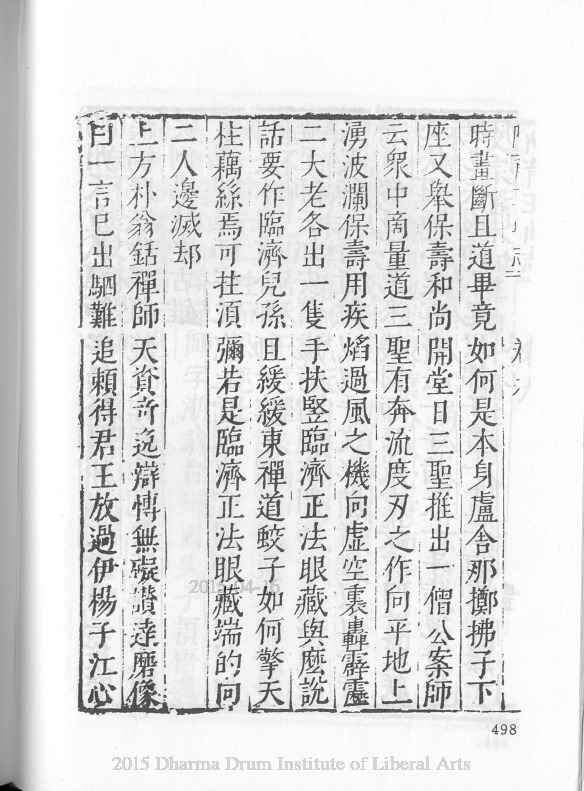 時畫斷且道畢竟如何是本身盧舍那擲拂子下
座又舉保壽和尚開堂日三聖推出一僧公案師
云衆中商量道三聖有奔流度刃之作向平地上
湧波瀾保壽用疾熖過風之機向虛空裏轟霹靂
二大老各出一隻手扶竪臨濟正法眼藏與麽說
話要作臨濟兒孫且緩緩東禪道蛟子如何擎天
柱藕絲焉可拄湏彌若是臨濟正法眼藏端的向
二人邊滅却
上方朴翁銛禪師天資竒逸辯博無礙讃達磨像
曰一言已出駟難追頼得君王放過伊楊子江心
498
2015 Dharma Drum Institute of Liberal Arts